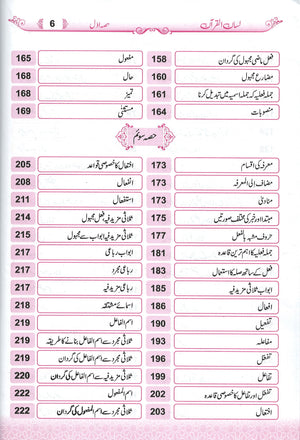 لسان القرآن 6 حصہ اول
فعل ماضی مجہول کی گردان 158
مضارع مجہول 160
جملہ فعلیہ کہ جملہ اسمیہ میں تبدیل کرنا 161
منصوبات 164
مفعول 165
حال 168
تمیز 168
مستثنیٰ 169
حصہ سوئم
معرفہ کی اقسام 173
مضاف الی المعرفہ 173
منادیٰ 173
مبتدا اور خبر کی مختلف صورتیں 175
حروف مشبہ بالفعل 177
جملہ فعلیہ کا اہم ترین قاعدہ 181
فعل کے ساتھ صلہ کا استعمال 183
ابواب ثلاثی مزید فیہ 185
افعال 186
تفعیل 190
مفاعلہ 193
تفعّل 196
تفاعل 199
تفعل اور تفاعل کا خصوصی قاعدہ 202
افتعال 203
افتعال کا خصوصی قواعد 205
انفعال 208
استفعال 211
ثلاثی مزید فیہ فعل مجہول 214
ثلاثی مزید فیہ ابواب سے مجہول 215
رباعی مجرد 217
رباعی مزید فیہ 217
اسمائے مشتقہ 217
اسم الفاعل 219
ثلاثی مجرد سے اسم الفاعل بنانے کا طریقہ 219
ثلاثی مجرد سے اسم الفاعل کی گردان 219
ثلاثی مزید فیہ سے اسم الفاعل کی گردان 220
اسم المفعول 222
ثلاثی مجرد سے اسم المفعول کی گردان 222